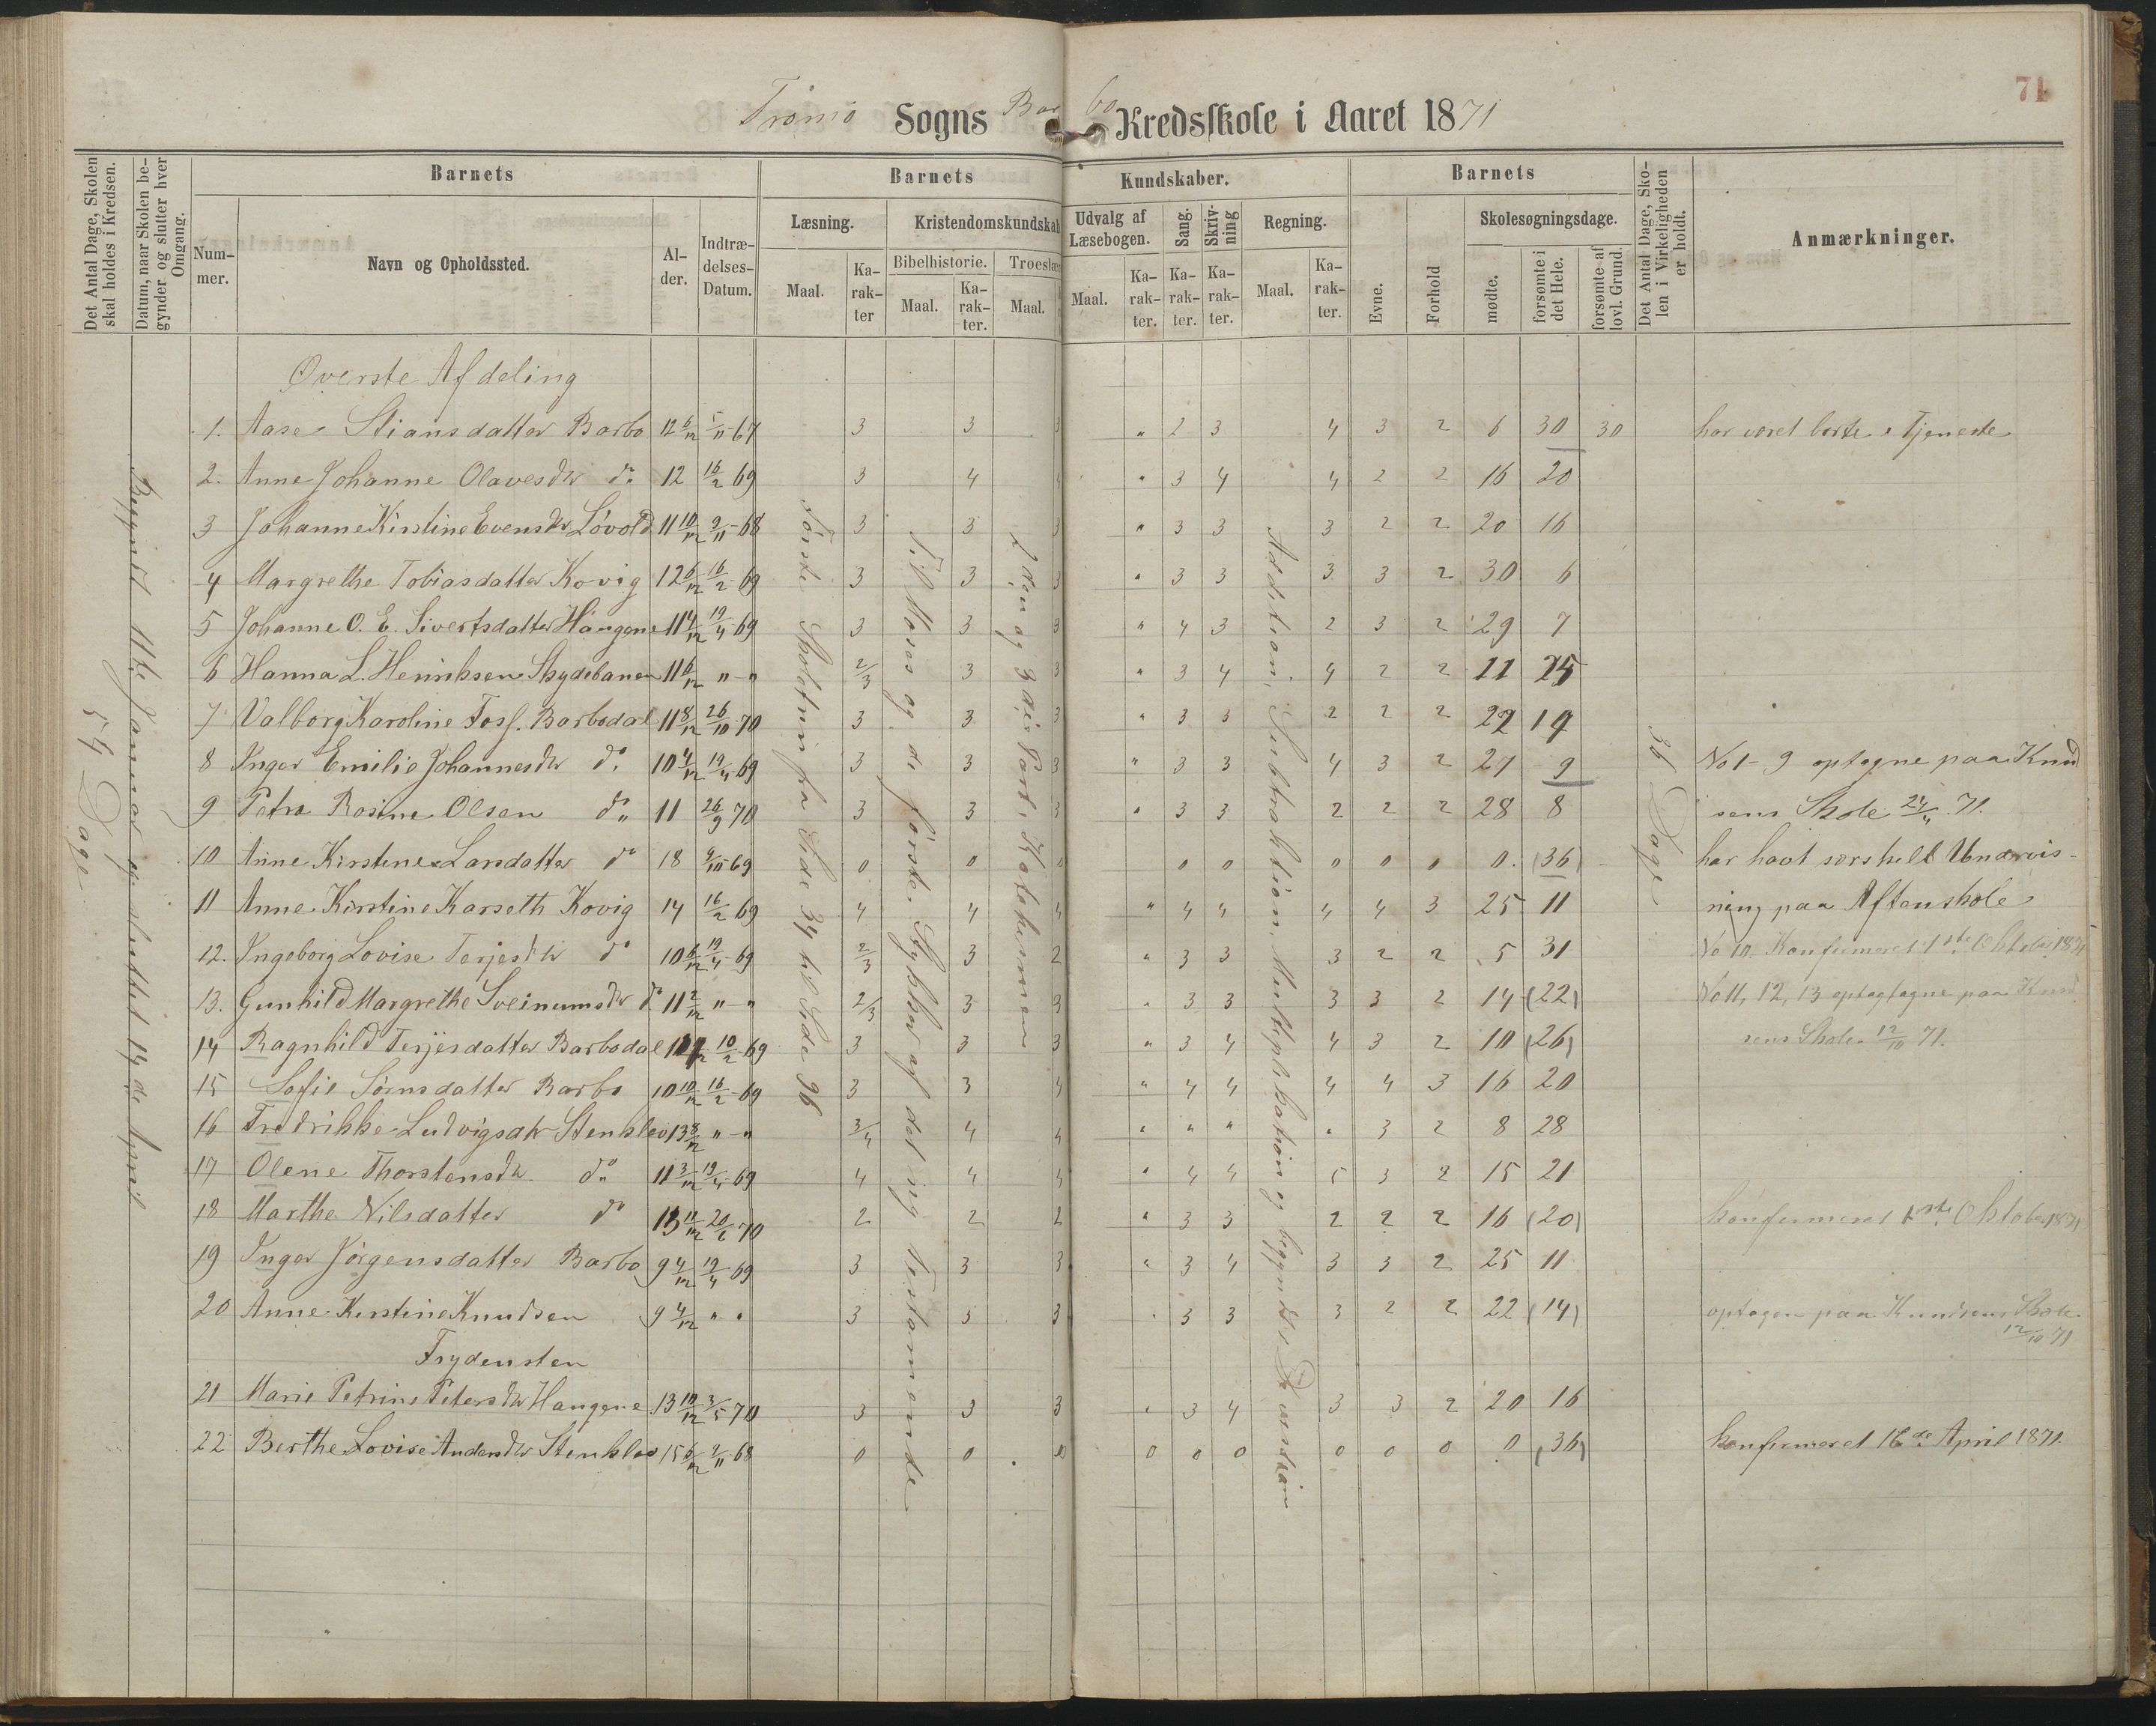 71
Tromø Sogns Barbo Kredsskole i Aaret 1871
Det Antal Dage, Skolen skal holdes i Kredsen.
Datum, naar Skolen begynder og slutter hver Omgang.
Barnets
Barnets
Kundskaber.
Barnets
Det Antal Dage, Skolen i Virkeligheden er holdt.
Anmærkninger.
Nummer.
Navn og Opholdssted.
Alder.
Indtrædelses-Datum.
Læsning.
Kristendomskundskab
Udvalg af Læsebogen.
Sang.
Skrivning
Regning.
Skolesøgningsdage.
Bibelhistorie.
Troeslære
Maal.
Karakter
Maal.
Karakter.
Maal.
Maal.
Karakter.
Karakter.
Karakter.
Maal.
Karakter.
Evne.
Forhold
mødte.
forsømte i det Hele.
forsømte af lovl. Grund.
54 Dage
Begyndt 11te Januar og sluttet 14de April
Første Skoletrin fra Side 34 til Side 96
Til Moses og de første Stykker af det nye Testamente
2den og 3die Part, Katekismen
Addition, Subtraktion, Multiplikation og begyndt i Division
36 Dage
Øverste Afdeling
1. Aase Stiansdatter Barbo 12 6/12 5/11-67 3 3 3 " 2 3 4 3 2 6 30 30 har været borte i Tjeneste
2. Anne Johanne Olavesdtr do 12 16/2 69 3 4 4 " 3 4 4 2 2 16 20
3 Johanne Kirstine Evensdtr Løvold 11 10/12 9/11-68 3 3 3 " 3 3 3 2 2 20 16
4 Margrethe Tobiasdatter Kovig 12 6/12 16/2-69 3 3 3 " 3 3 3 3 2 30 6
5 Johanne O. E. Sivertsdatter Haugene 11 4/12 19/4 69 3 3 3 " 4 3 2 3 2 29 7
6 Hanna L. Henriksen Skydebanen 11 6/12 " - " 2/3 3 3 " 3 4 4 2 2 11 25
7 Valborg Karoline Tosf. Barbodal 11 8/12 26/10 70 3 3 3 " 3 3 2 2 2 22 19
8 Inger Emilie Johannesdtr do 10 4/12 19/4 69 3 3 3 " 3 3 4 3 2 27 9 No 1-9 optagne paa Knud
9 Petra Rosine Olsen do 11 26/9 70 3 3 3 " 3 3 2 2 2 28 8 sens Skole 24/4 71.
10 Anne Kirstine Larsdatter do 18 9/10 69 0 0 0 0 0 0 0 0 0 (36) har havt særskilt Undervis-
11 Anne Kirstine Karseth Kovig 14 16/2 69 4 4 4 " 4 4 4 4 3 25 11 ning paa Aftenskole
12. Ingeborg Lovise Terjesdtr do 10 6/12 19/4-69 2/3 3 2 " 3 3 3 2 2 5 31 No 10. Konfirmeret 1ste Oktober 1871
13. Gunhild Margrethe Sveinumsdtr do 11 2/12 " - " 2/3 3 3 " 3 3 3 3 2 14 (22) No 11, 12, 13 optagtagne paa Knud
14 Ragnhild Terjesdatter Barbodal 10/2-69 3 3 3 " 3 4 4 3 2 10 (26) sens Skole 12/10 71.
15 Sofie Sørnsdatter Barbo 10 10/12 16/2-69 3 3 4 " 4 4 4 4 3 16 20
16 Fredrikke Ludvigsdtr Stenklev 13 8/12 " - " 3/4 4 4 " " " " 3 2 8 28
17 Olene Thorstensdtr do 11 3/12 19/4-69 4 4 4 " 4 4 5 3 2 15 21
18 Marthe Nilsdatter do 13 11/12 20/6 70 2 2 2 " 3 3 2 2 2 16 (20) konfirmeret 1ste Oktober 1871
19 Inger Jörgensdatter Barbo 9 4/12 19/4 69 3 3 3 " 3 4 3 3 2 25 11
20 Anne Kirstine Knudsen 9 4/12 " " 3 3 3 " 3 3 3 2 2 22 (14) optagen paa Knudsens Skole
12/10 71
Frydensten
21 Marie Petrine Petersdtr Haugene 13 10/12 3/5 70 3 3 3 " 3 4 3 3 2 20 16
22 Berthe Lovise Andersdtr Stenklev 15 6/12 2/11 68 0 0 0 0 0 0 0 0 0 0 (36) konfirmeret 16de April 1871.